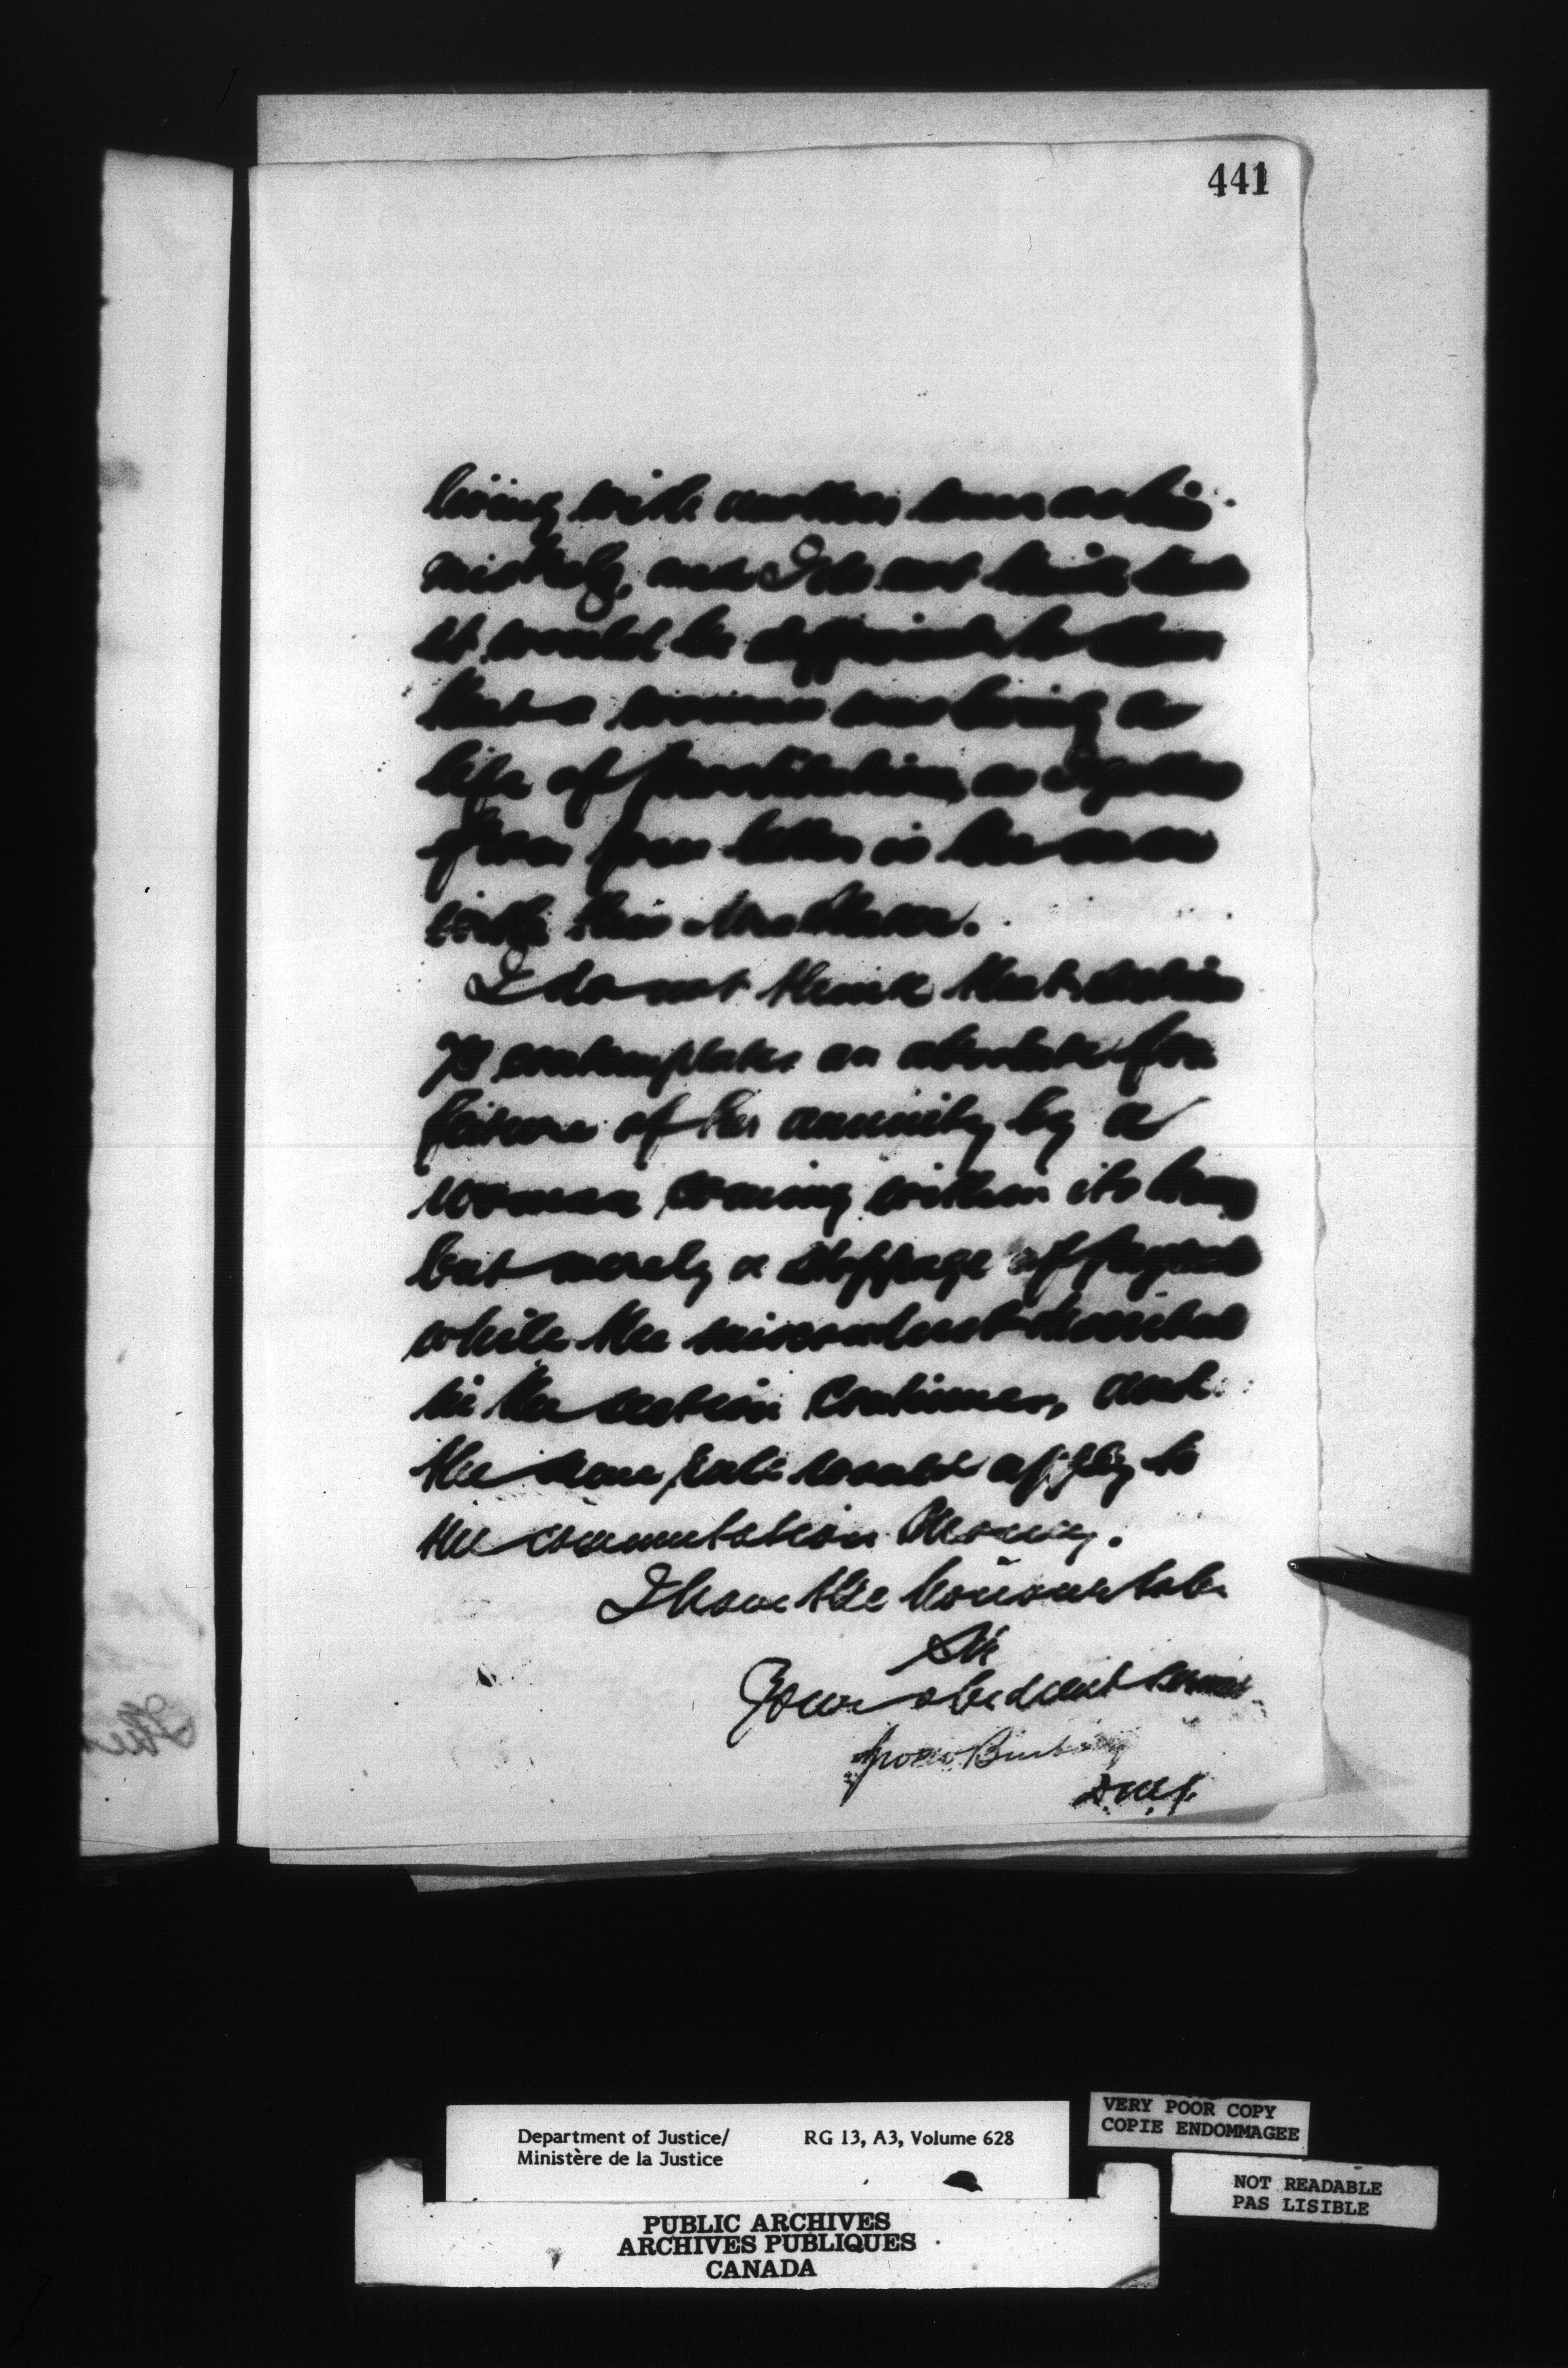 441
living with another man as his
mistress, and I do not think that
it would be sufficient to show
that a woman was living a
life of prostitution, as I gather
from your letter is the case
with this Mrs
I do not think that section
73 contemplates an absolute for
feiture of her annuity by a
woman coming within its terms
but merely a stoppage of payment
while the misconduct described
in the section continues, and
the same rule would apply to
the commutation money.
I have the honour to be
Sir
Your obedient servant
Burbidge
D.M.J.
Department of Justice/ RG 13, A3, Volume 628
Ministère de la Justice
PUBLIC ARCHIVES
ARCHIVES PUBLIQUES
CANADA
VERY POOR COPY
COPIE ENDOMMAGEE
NOT READABLE
PAS LISIBLE